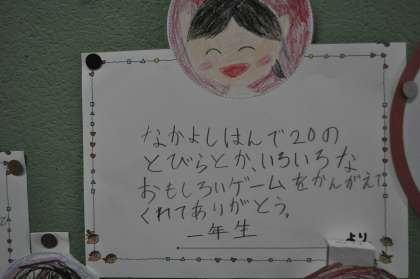 なかよしはんで20の
とびらとか、いろいろな
おもしろいゲームをかんがえて
くれてありがとう。
一年生
より